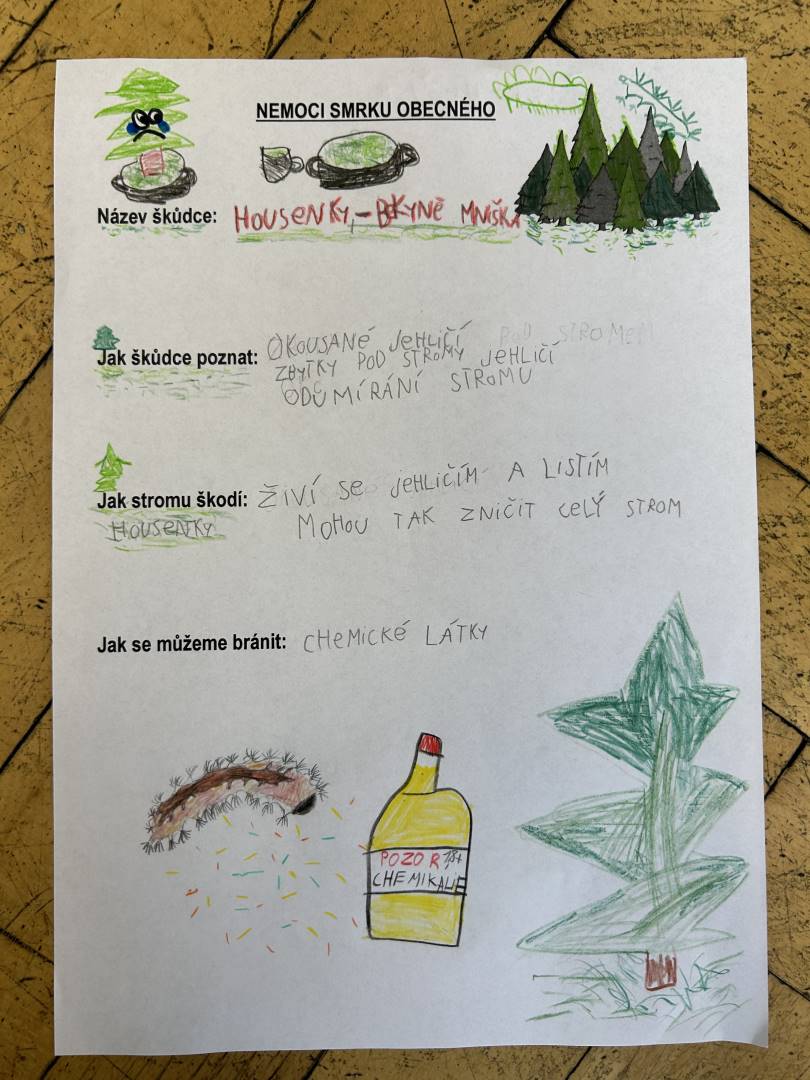 NEMOCI SMRKU OBECNÉHO
Název škůdce: HOUSENKY - BEKYNĚ MNIŠKA
Jak škůdce poznat: OKOUSANÉ JEHLIČÍ POD STROMEM
ZBYTKY POD STROMY JEHLIČÍ
ODUMÍRÁNÍ STROMU
Jak stromu škodí: ŽIVÍ SE JEHLIČÍM A LISTÍM
HOUSENKY MOHOU TAK ZNIČIT CELÝ STROM
Jak se můžeme bránit: CHEMICKÉ LÁTKY
POZOR 18+
CHEMIKALIE